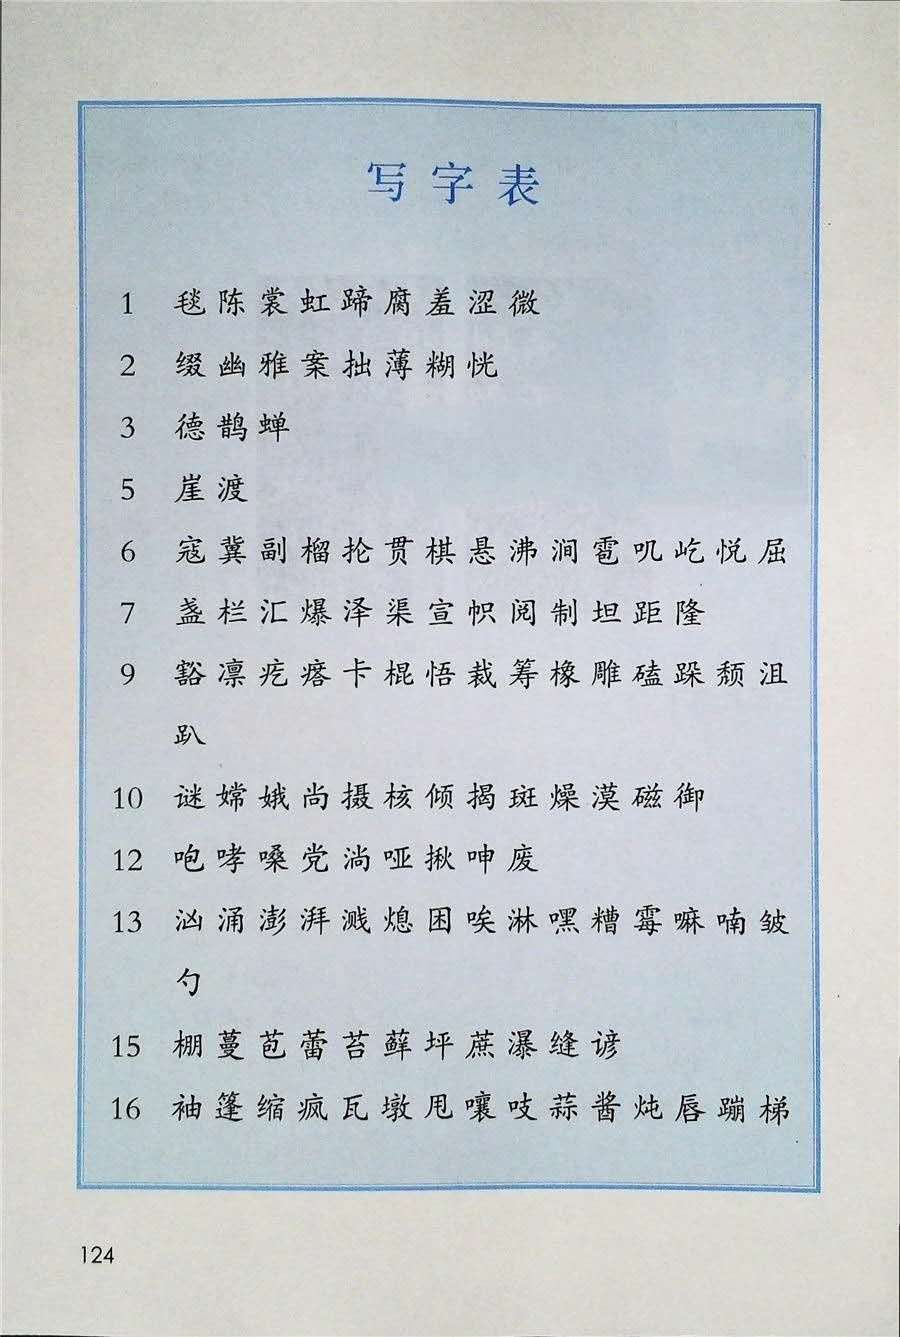 写字表
1 毯陈裳虹蹄腐羞涩微
2 缀幽雅案拙薄糊恍
3 德鹊蝉
5 崖渡
6 寇冀副榴抡贯棋悬沸涧雹叽屹悦屈
7 盏栏汇爆泽渠宣帜阅制坦距隆
9 豁凛疙瘩卡棍悟裁筹橡雕磕跺颓沮
趴
10 谜嫦娥尚摄核倾揭斑燥漠磁御
12 咆哮嗓党淌哑揪呻废
13 汹涌澎湃溅熄困唉淋嘿糟霉嘛喃皱
勺
15 棚蔓苞蕾苔藓坪蔗瀑缝谚
16 袖篷缩疯瓦墩甩嚷吱蒜酱炖唇蹦梯
124